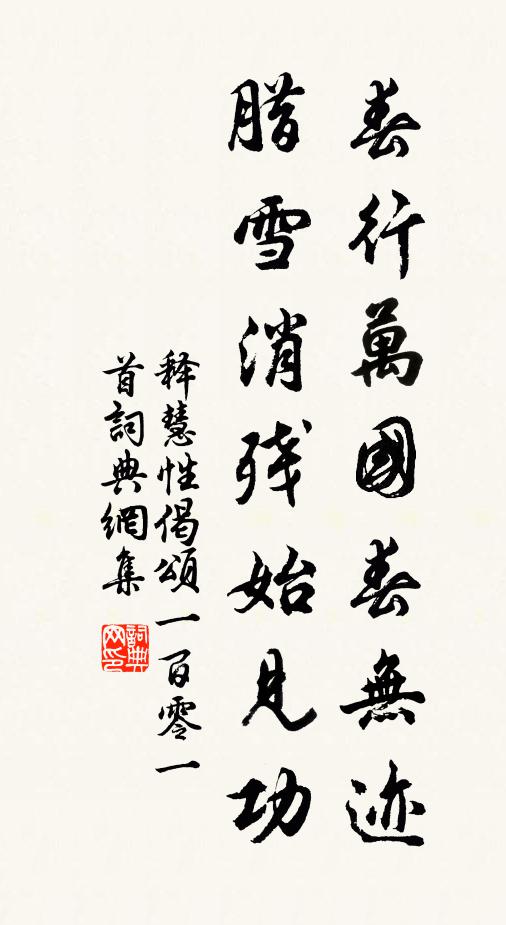 春行萬國春無迹
腊雪消残始見功
释慧性偈頌一百零一
首詞典網集
詞典
网印